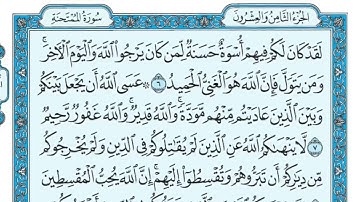 الجزء الثامن والعشرون
سورة الممتحنة
لَقَدْ كَانَ لَكُمْ فِيهِمْ أُسْوَةٌ حَسَنَةٌ لِّمَن كَانَ يَرْجُوا۟ ٱللَّهَ وَٱلْيَوْمَ ٱلْءَاخِرَ ۚ
وَمَن يَتَوَلَّ فَإِنَّ ٱللَّهَ هُوَ ٱلْغَنِىُّ ٱلْحَمِيدُ ٦ ۞ عَسَى ٱللَّهُ أَن يَجْعَلَ بَيْنَكُمْ
وَبَيْنَ ٱلَّذِينَ عَادَيْتُم مِّنْهُم مَّوَدَّةً ۚ وَٱللَّهُ قَدِيرٌ ۚ وَٱللَّهُ غَفُورٌ رَّحِيمٌ
٧ لَّا يَنْهَىٰكُمُ ٱللَّهُ عَنِ ٱلَّذِينَ لَمْ يُقَٰتِلُوكُمْ فِى ٱلدِّينِ وَلَمْ يُخْرِجُوكُم
مِّن دِيَٰرِكُمْ أَن تَبَرُّوهُمْ وَتُقْسِطُوٓا۟ إِلَيْهِمْ ۚ إِنَّ ٱللَّهَ يُحِبُّ ٱلْمُقْسِطِينَ